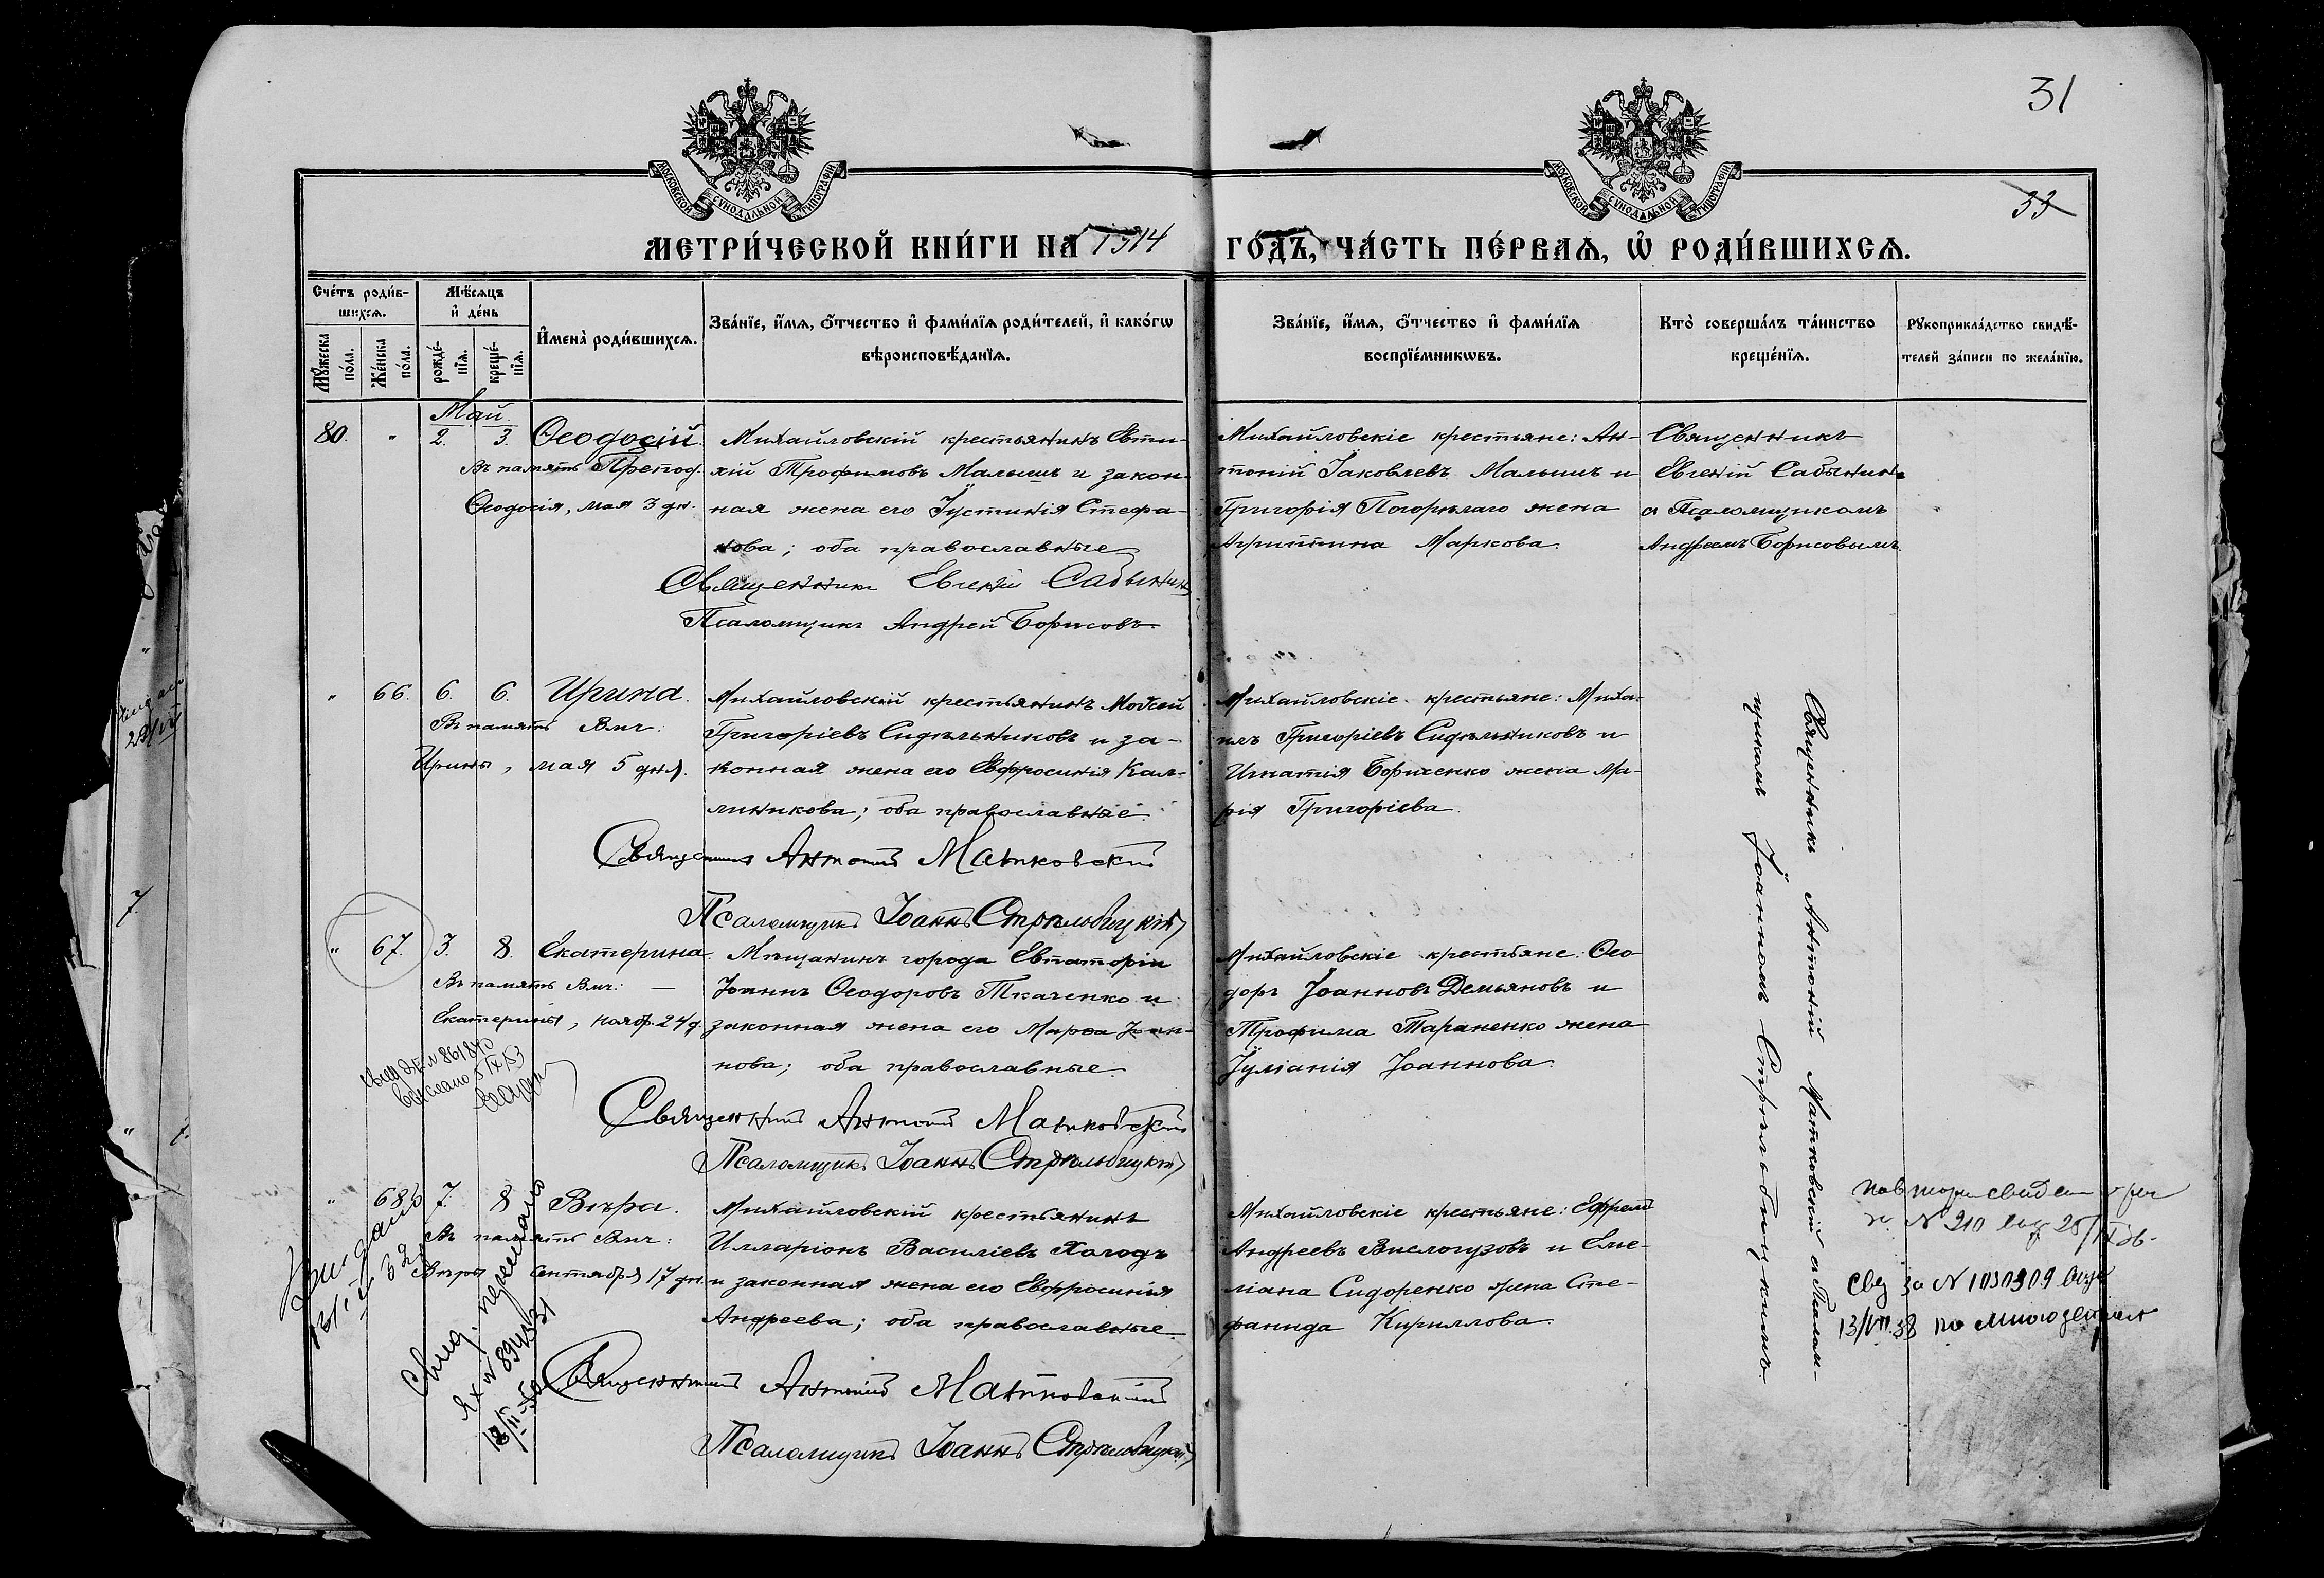 31
33
МОСКОВСКОЙ СѴНОДАЛЬНОЙ ТИПОГРАФІИ
МОСКОВСКОЙ СѴНОДАЛЬНОЙ ТИПОГРАФІИ
МЕТРИ́ЧЕСКОЙ КНИ́ГИ НА 1914 ГО́ДЪ, ЧА́СТЬ ПЕ́РВАѦ, Ѡ҆ РОДИ́ВШИХСѦ.
Сче́тъ роди́в-
шихсѧ.
Мѣ́сѧцъ
и҆ де́нь
Мꙋ́жеска по́ла.
Же́нска по́ла.
рожде́-
нїѧ.
креще́-
нїѧ.
И҆мена̀ роди́вшихсѧ.
Зва́нїе, и҆́мѧ, ѻ҆́тчество и҆ фами́лїѧ роди́телей, и҆ како́гѡ
вѣроисповѣ́данїѧ.
Зва́нїе, и҆́мѧ, ѻ҆́тчество и҆ фами́лїѧ
воспрїе́мникѡвъ.
Кто̀ соверша́лъ та́инство
креще́нїѧ.
Рꙋкоприкла́дство свидѣ́-
телей за́писи по жела́нїю.
Май.
80. " 2. 3. Ѳеодосій.
Въ память Препод.
Ѳеодосія, мая 3 дн.
Михайловскій крестьянинъ Евти-
хій Трофимовъ Малышъ и закон-
ная жена его Іустинія Стефа-
нова; оба православные
Священникъ Евгеній Сабынинъ
Псаломщикъ Андрей Борисовъ.
Михайловскіе крестьяне: Ан-
тоній Іаковлевъ Малышъ и
Григорія Погорѣлаго жена
Агриппина Маркова.
Священникъ
Евгеній Сабынинъ
съ Псаломщикомъ
Андреемъ Борисовымъ.
" 66. 6. 6. Ирина.
Въ память Вмч:
Ирины, мая 5 дня.
Михайловскій крестьянинъ Моѵсей
Григоріевъ Сидѣльниковъ и за-
конная жена его Евфросинія Кал-
линикова; оба православные.
Священникъ Антоній Матковскій
Псаломщикъ Іоаннъ Стрѣльбицкій
Михайловскіе крестьяне: Миха-
илъ Григоріевъ Сидѣльниковъ и
Игнатія Борисенко жена Ма-
рія Григоріева.
Священникъ Антоній Матковскій съ Псалом-
щикомъ Іоанномъ Стрѣльбицкимъ.
" 67. 3. 8. Екатерина.
Въ память Вмч:
Екатерины, нояб. 24 д.
Мѣщанинъ города Евпаторіи
Іоаннъ Ѳеодоровъ Ткаченко и
законная жена его Марѳа Іоан-
нова; оба православные.
Священникъ Антоній Матковскій
Псаломщикъ Іоаннъ Стрѣльбицкій
Михайловскіе крестьяне: Ѳео-
доръ Іоанновъ Демьяновъ и
Трофима Тараненко жена
Іуліанія Іоаннова.
" 68. 7. 8 Вѣра.
Въ память Вмч:
Вѣры сентября 17 дн.
Михайловскій крестьянинъ
Илларіонъ Василіевъ Холодъ
и законная жена его Евфросинія
Андреева; оба православные
Священникъ Антоній Матковскій
Псаломщикъ Іоаннъ Стрѣльбицкій
Михайловскіе крестьяне: Ефремъ
Андреевъ Вислогузовъ и Еме-
ліана Сидоренко жена Сте-
фанида Кириллова.
Свид.
13/VII 38
7.